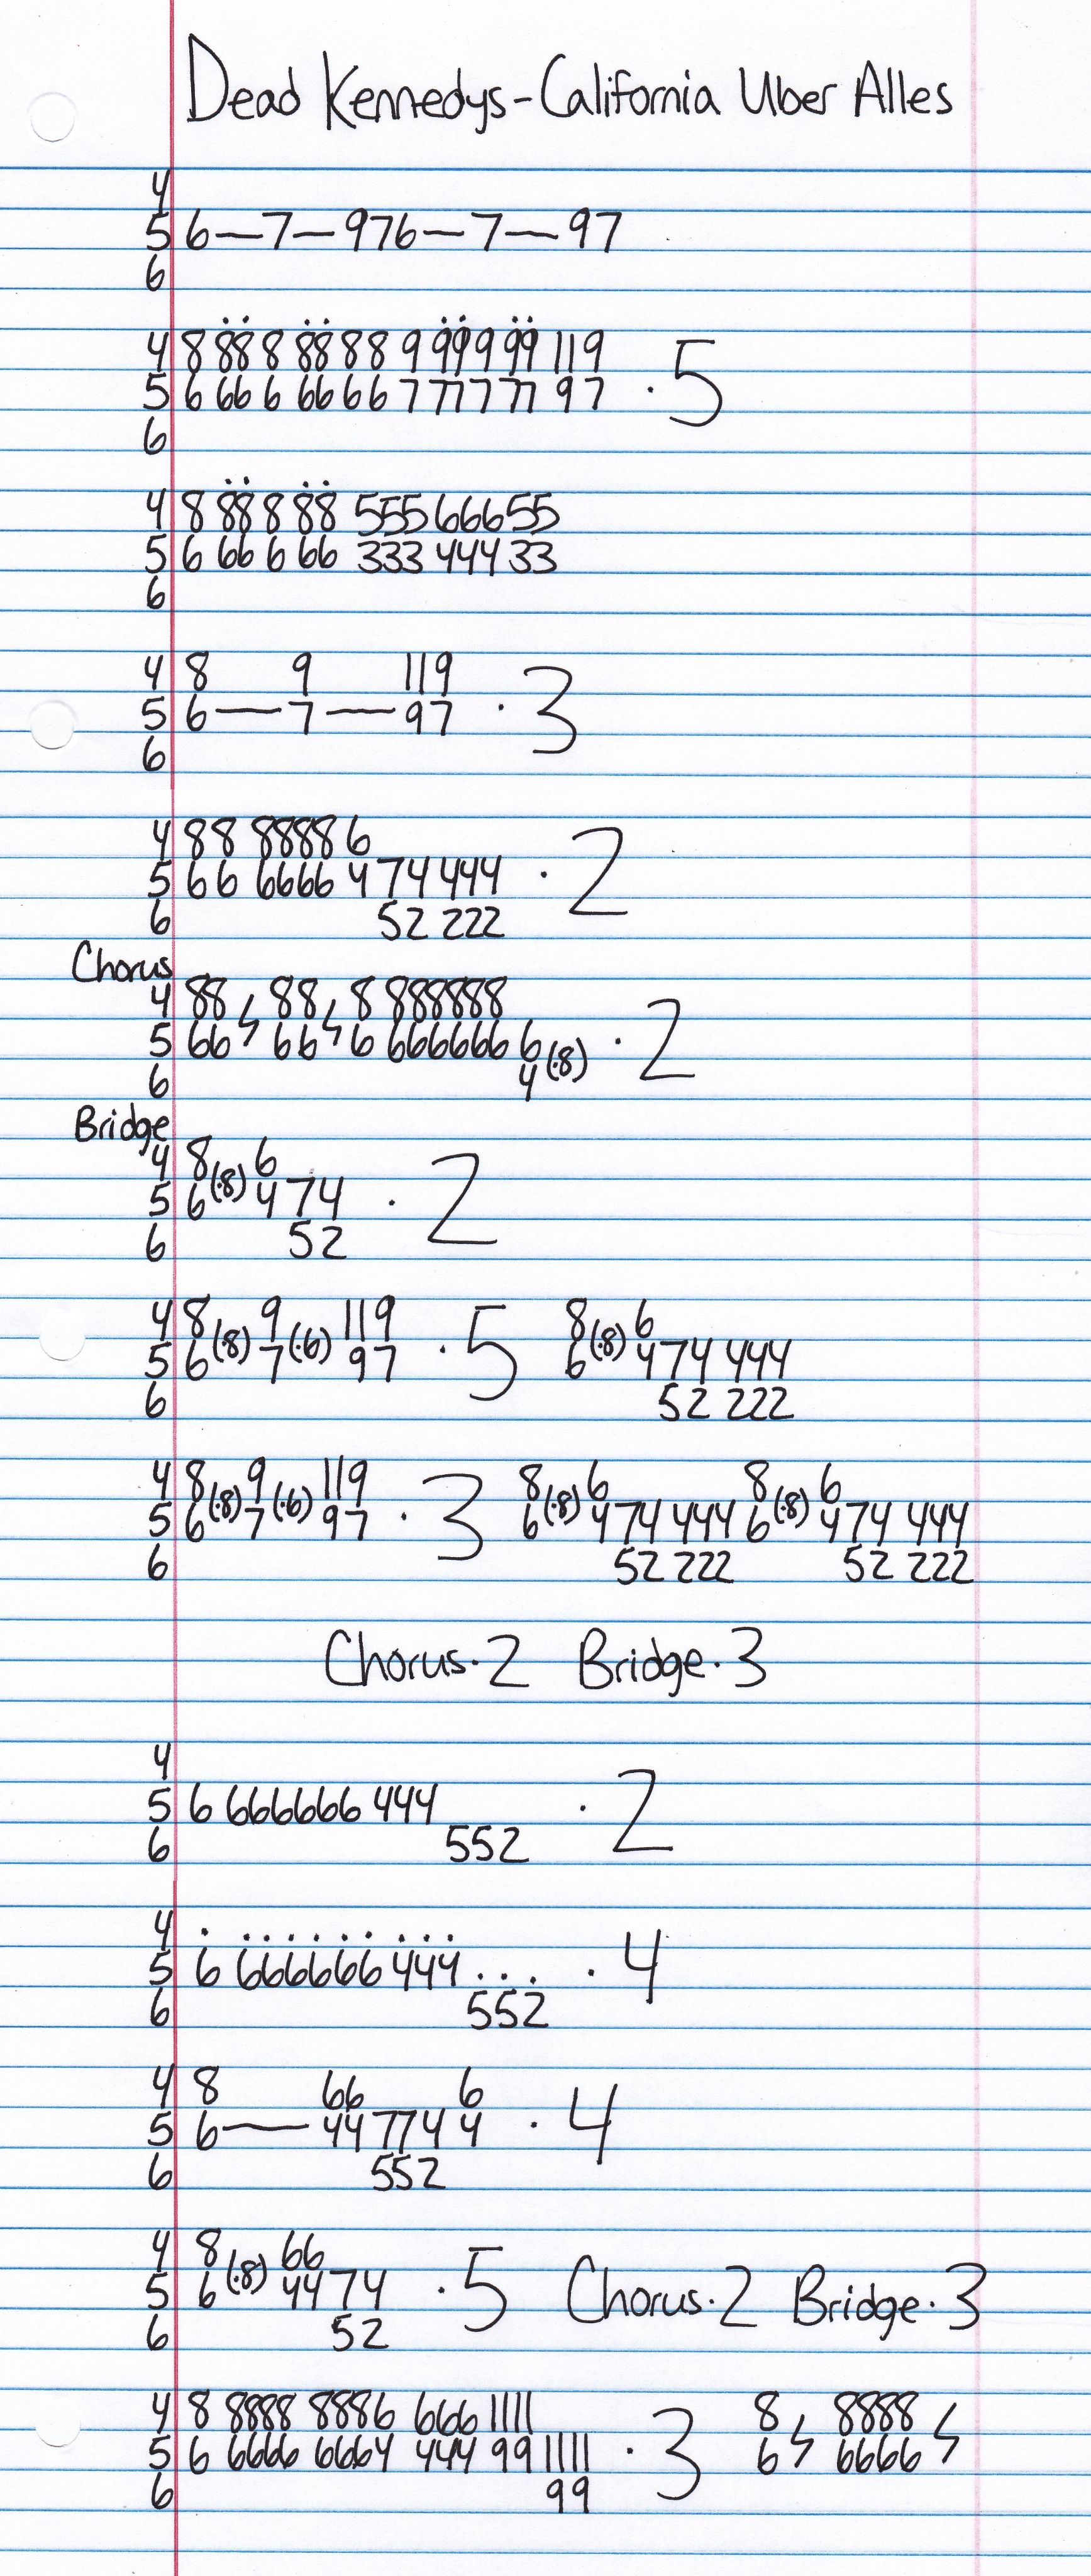 Dead Kennedys-California Uber Alles
4
5 6—7—976—7—97
6
4 8 88 8 88 8 8 9 99 9 99 11 9
5 6 66 6 66 6 6 7 77 7 77 9 7 ·5
6
4 8 88 8 88 555 666 55
5 6 66 6 66 333 444 33
6
4 8 9 11 9
5 6—7—97 ·3
6
4 88 8888 6
5 66 6666 4 74 444 ·2
6 52 222
Chorus
4 88 88 8 888888
5 66 66 6 666666 6 (·8) ·2
6 4
Bridge
4 8 6
5 6 (·8) 4 74 ·2
6 52
4 8 9 11 9 8 6
5 6 (·8) 7 (·6) 97 ·5 6 (·8) 4 74 444
6 52 222
4 8 9 11 9 8 6 8 6
5 6 (·8) 7 (·6) 97 ·3 6 (·8) 4 74 444 6 (·8) 4 74 444
6 52 222 52 222
Chorus·2 Bridge·3
4
5 6 666666 444 ·2
6 552
4
5 6 666666 444 ... ·4
6 552
4 8 66 6
5 6— 44 774 4 ·4
6 552
4 8 66
5 6 (·8) 44 74 ·5 Chorus·2 Bridge·3
6 52
4 8 8888 8886 666 11 11 8 8888
5 6 6666 6664 444 99 11 11 ·3 6 6666
6 99